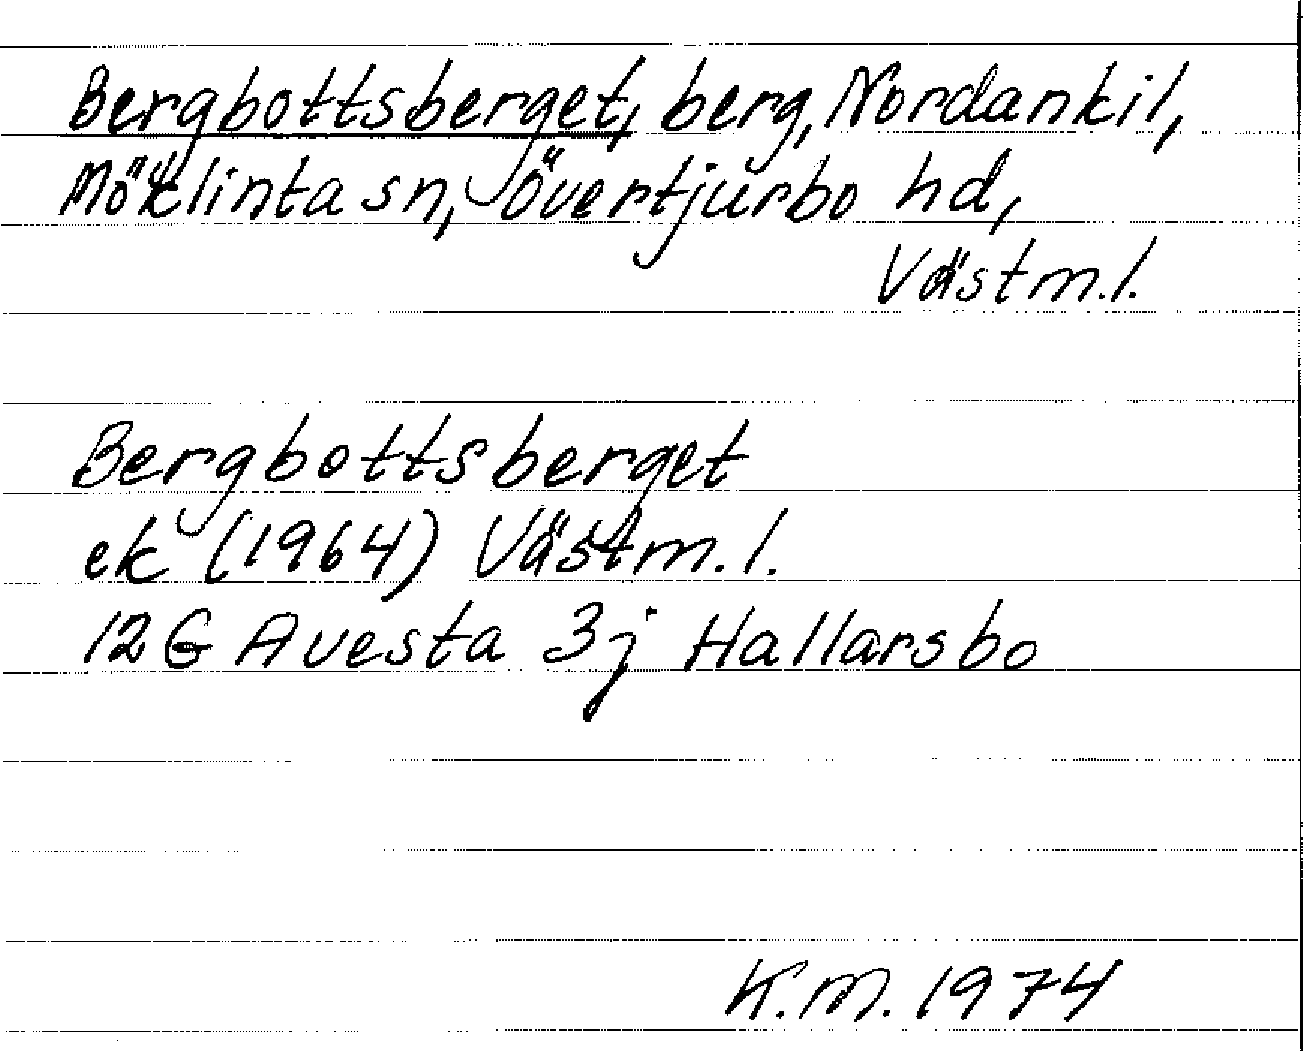 Bergbottsberget, berg, Nordankil,
Möklinta sn, Övertjurbo hd,
Västm.l.
Bergbottsberget
ek (1964) Västm.l.
12G Avesta 3j Hallarsbo
K.M. 1974